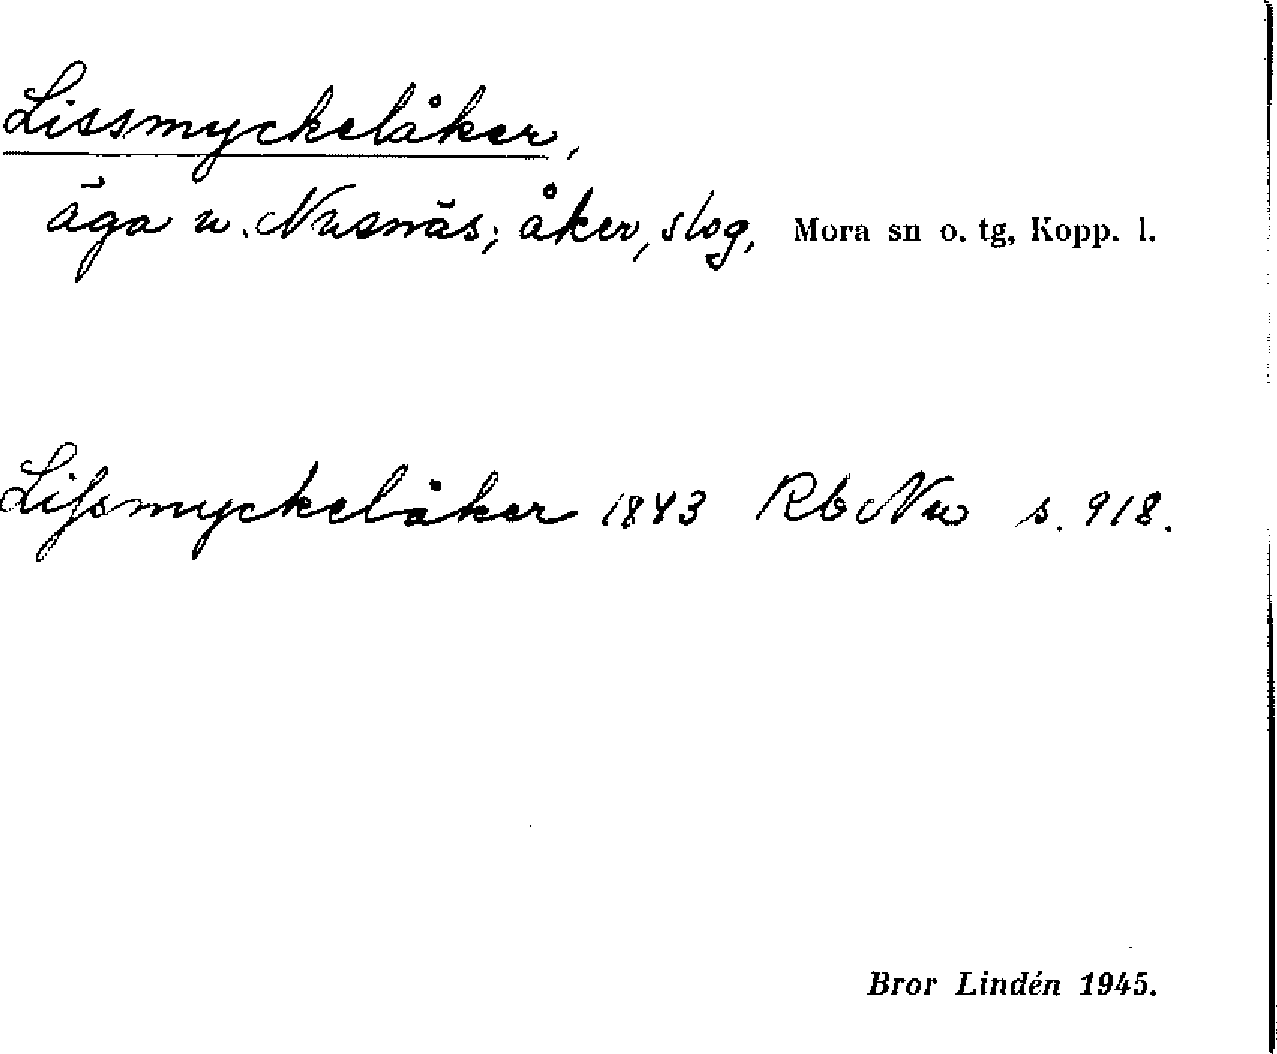 Lissmyckelåker,
äga u. Nusnäs; åker, slog, Mora sn o. tg, Kopp. l.
Lissmyckelåker 1843 Rb Nu s. 918.
Bror Lindén 1945.